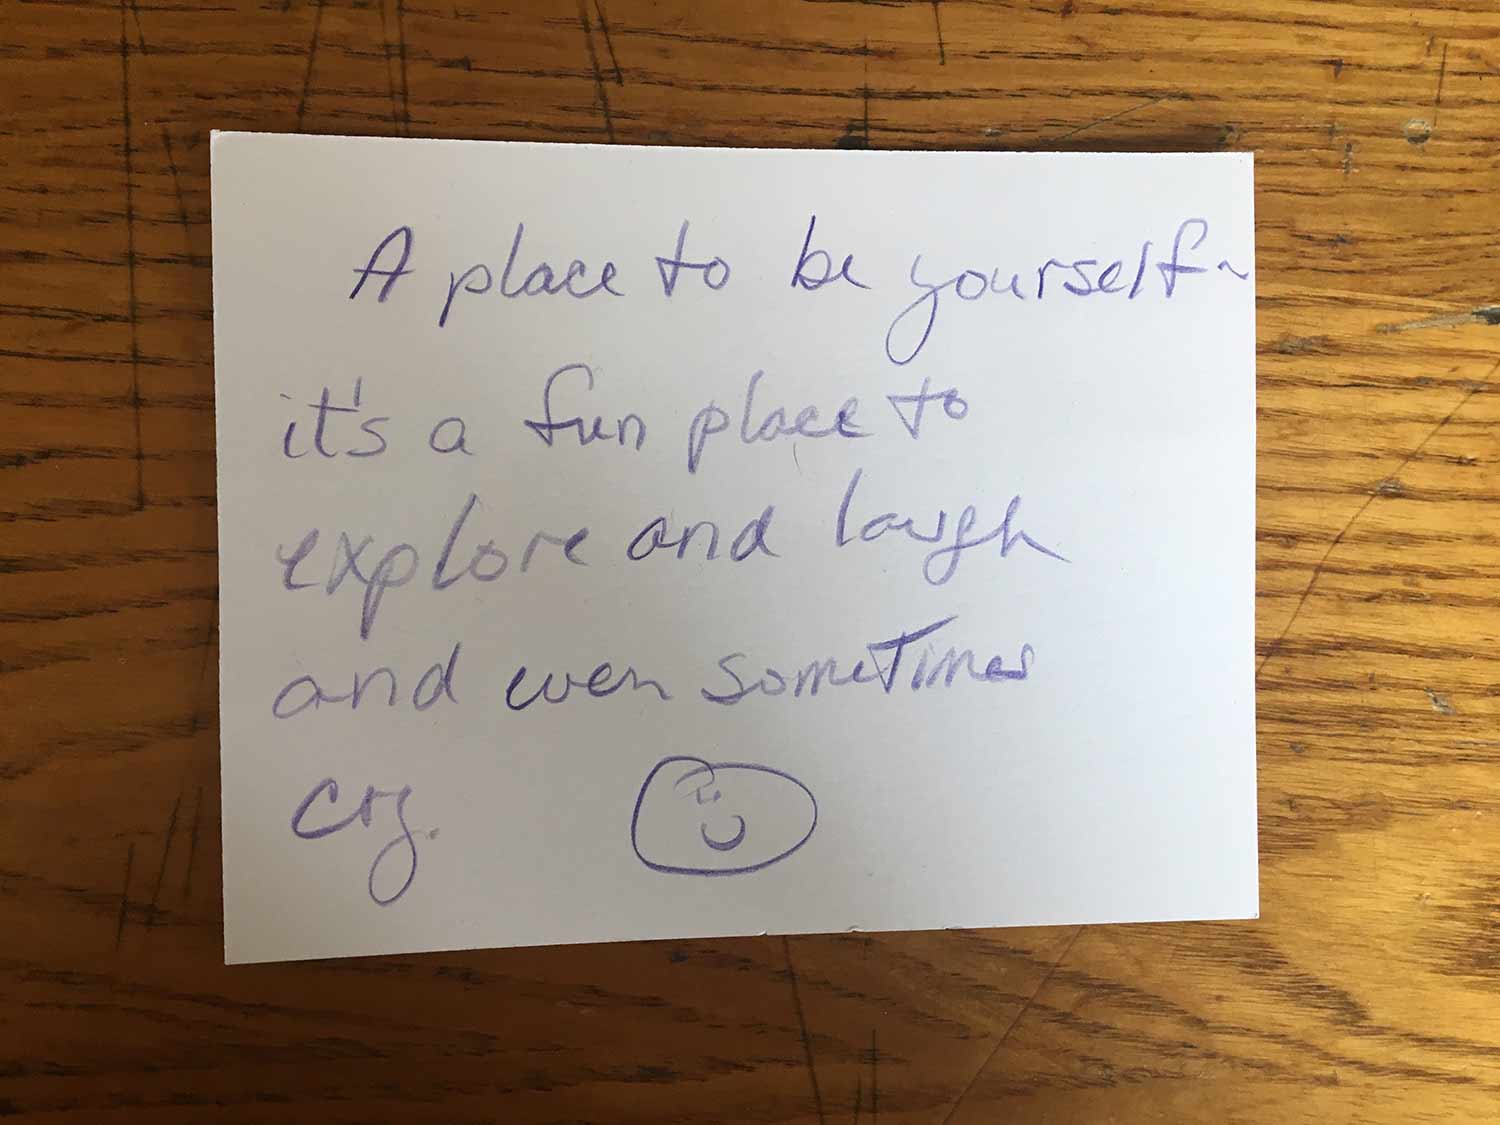 A place to be yourself~
it's a fun place to
explore and laugh
and even sometimes
cry.